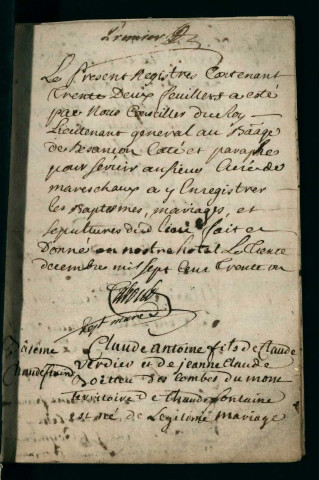 premier f
Le present Registres Contenant
trente Deux feuillets a coté
par Nous Conseiller du Roy
Lieutenant general au Baage
de Besançon Coté et paraphe
pour servir au sieur Curé de
mareschaux a y Enregistrer
les Baptesmes, mariages, et
sepultures dud lieu fait et
Donné en nostre hotel Le trente
decembre mil sept Cent Trente un
Claude antoine fils de Claude
verdier et de jeanne Claude
des Combes du mone
territoire de Chaudefontaine
est né de Legitime mariage